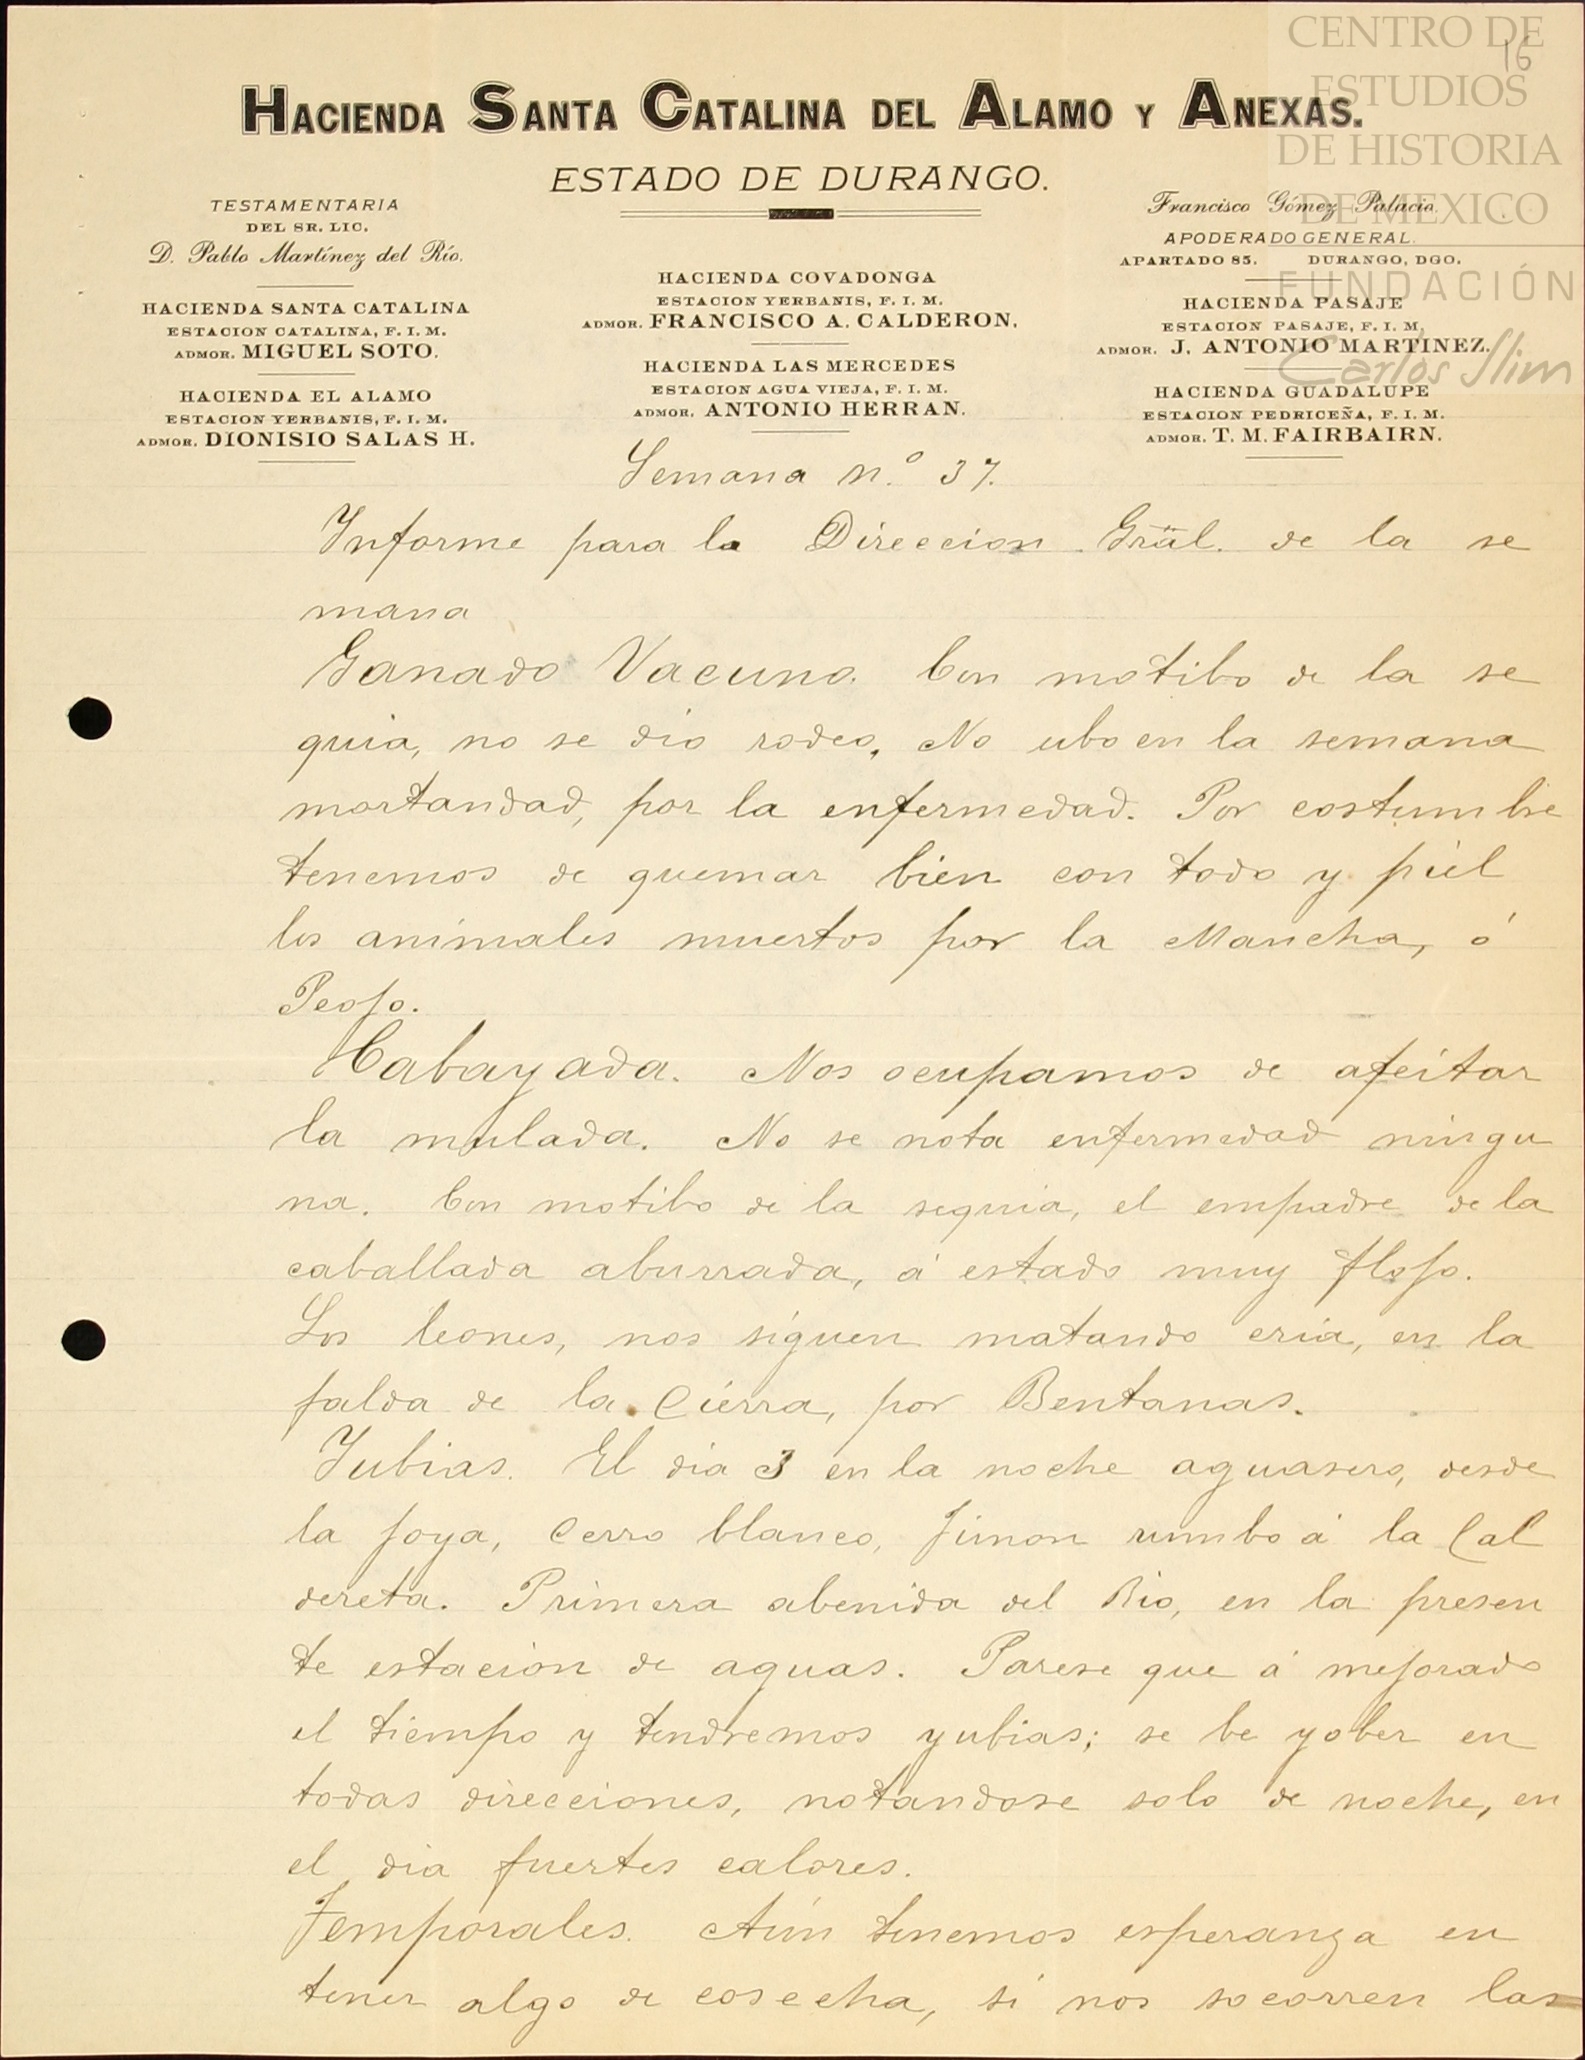 CENTRO DE
ESTUDIOS
DE HISTORIA
DE MEXICO
FUNDACIÓN
Carlos Slim
16
HACIENDA SANTA CATALINA DEL ALAMO Y ANEXAS.
ESTADO DE DURANGO.
TESTAMENTARIA
DEL SR. LIC.
D. Pablo Martínez del Río.
HACIENDA SANTA CATALINA
ESTACION CATALINA, F. I. M.
ADMOR. MIGUEL SOTO.
HACIENDA EL ALAMO
ESTACION YERBANIS, F. I. M.
ADMOR. DIONISIO SALAS H.
HACIENDA COVADONGA
ESTACION YERBANIS, F. I. M.
ADMOR. FRANCISCO A. CALDERON.
HACIENDA LAS MERCEDES
ESTACION AGUA VIEJA, F. I. M.
ADMOR. ANTONIO HERRAN.
Francisco Gómez Palacio.
APODERADO GENERAL.
APARTADO 85. DURANGO, DGO.
HACIENDA PASAJE
ESTACION PASAJE, F. I. M.
ADMOR. J. ANTONIO MARTINEZ.
HACIENDA GUADALUPE
ESTACION PEDRICEÑA, F. I. M.
ADMOR. T. M. FAIRBAIRN.
Semana n.º 37.
Informe para la Direccion Gräl. de la se
mana
Ganado Vacuno. Con motibo de la se
quia, no se dio rodeo. No ubo en la semana
mortandad, por la enfermedad. Por costumbre
tenemos de quemar bien con todo y piel
los animales muertos por la Mancha, ó
Peojo.
Cabayada. Nos ocupamos de afeitar
la mulada. No se nota enfermedad ningu
na. Con motibo de la sequia, el empadre de la
caballada aburrada, á estado muy flojo.
Los leones, nos siguen matando cria, en la
falda de la Cierra, por Bentanas.
Yubias. El dia 3 en la noche aguasero, desde
la Joya, Cerro blanco, Jimon rumbo á la Cal
dereta. Primera abenida del Rio, en la presen
te estación de aguas. Parese que á mejorado
el tiempo y tendremos yubias; se be yober en
todas direcciones, notandose solo de noche, en
el dia fuertes calores.
Temporales. Aún tenemos esperanza en
tener algo de cosecha, si nos socorren las